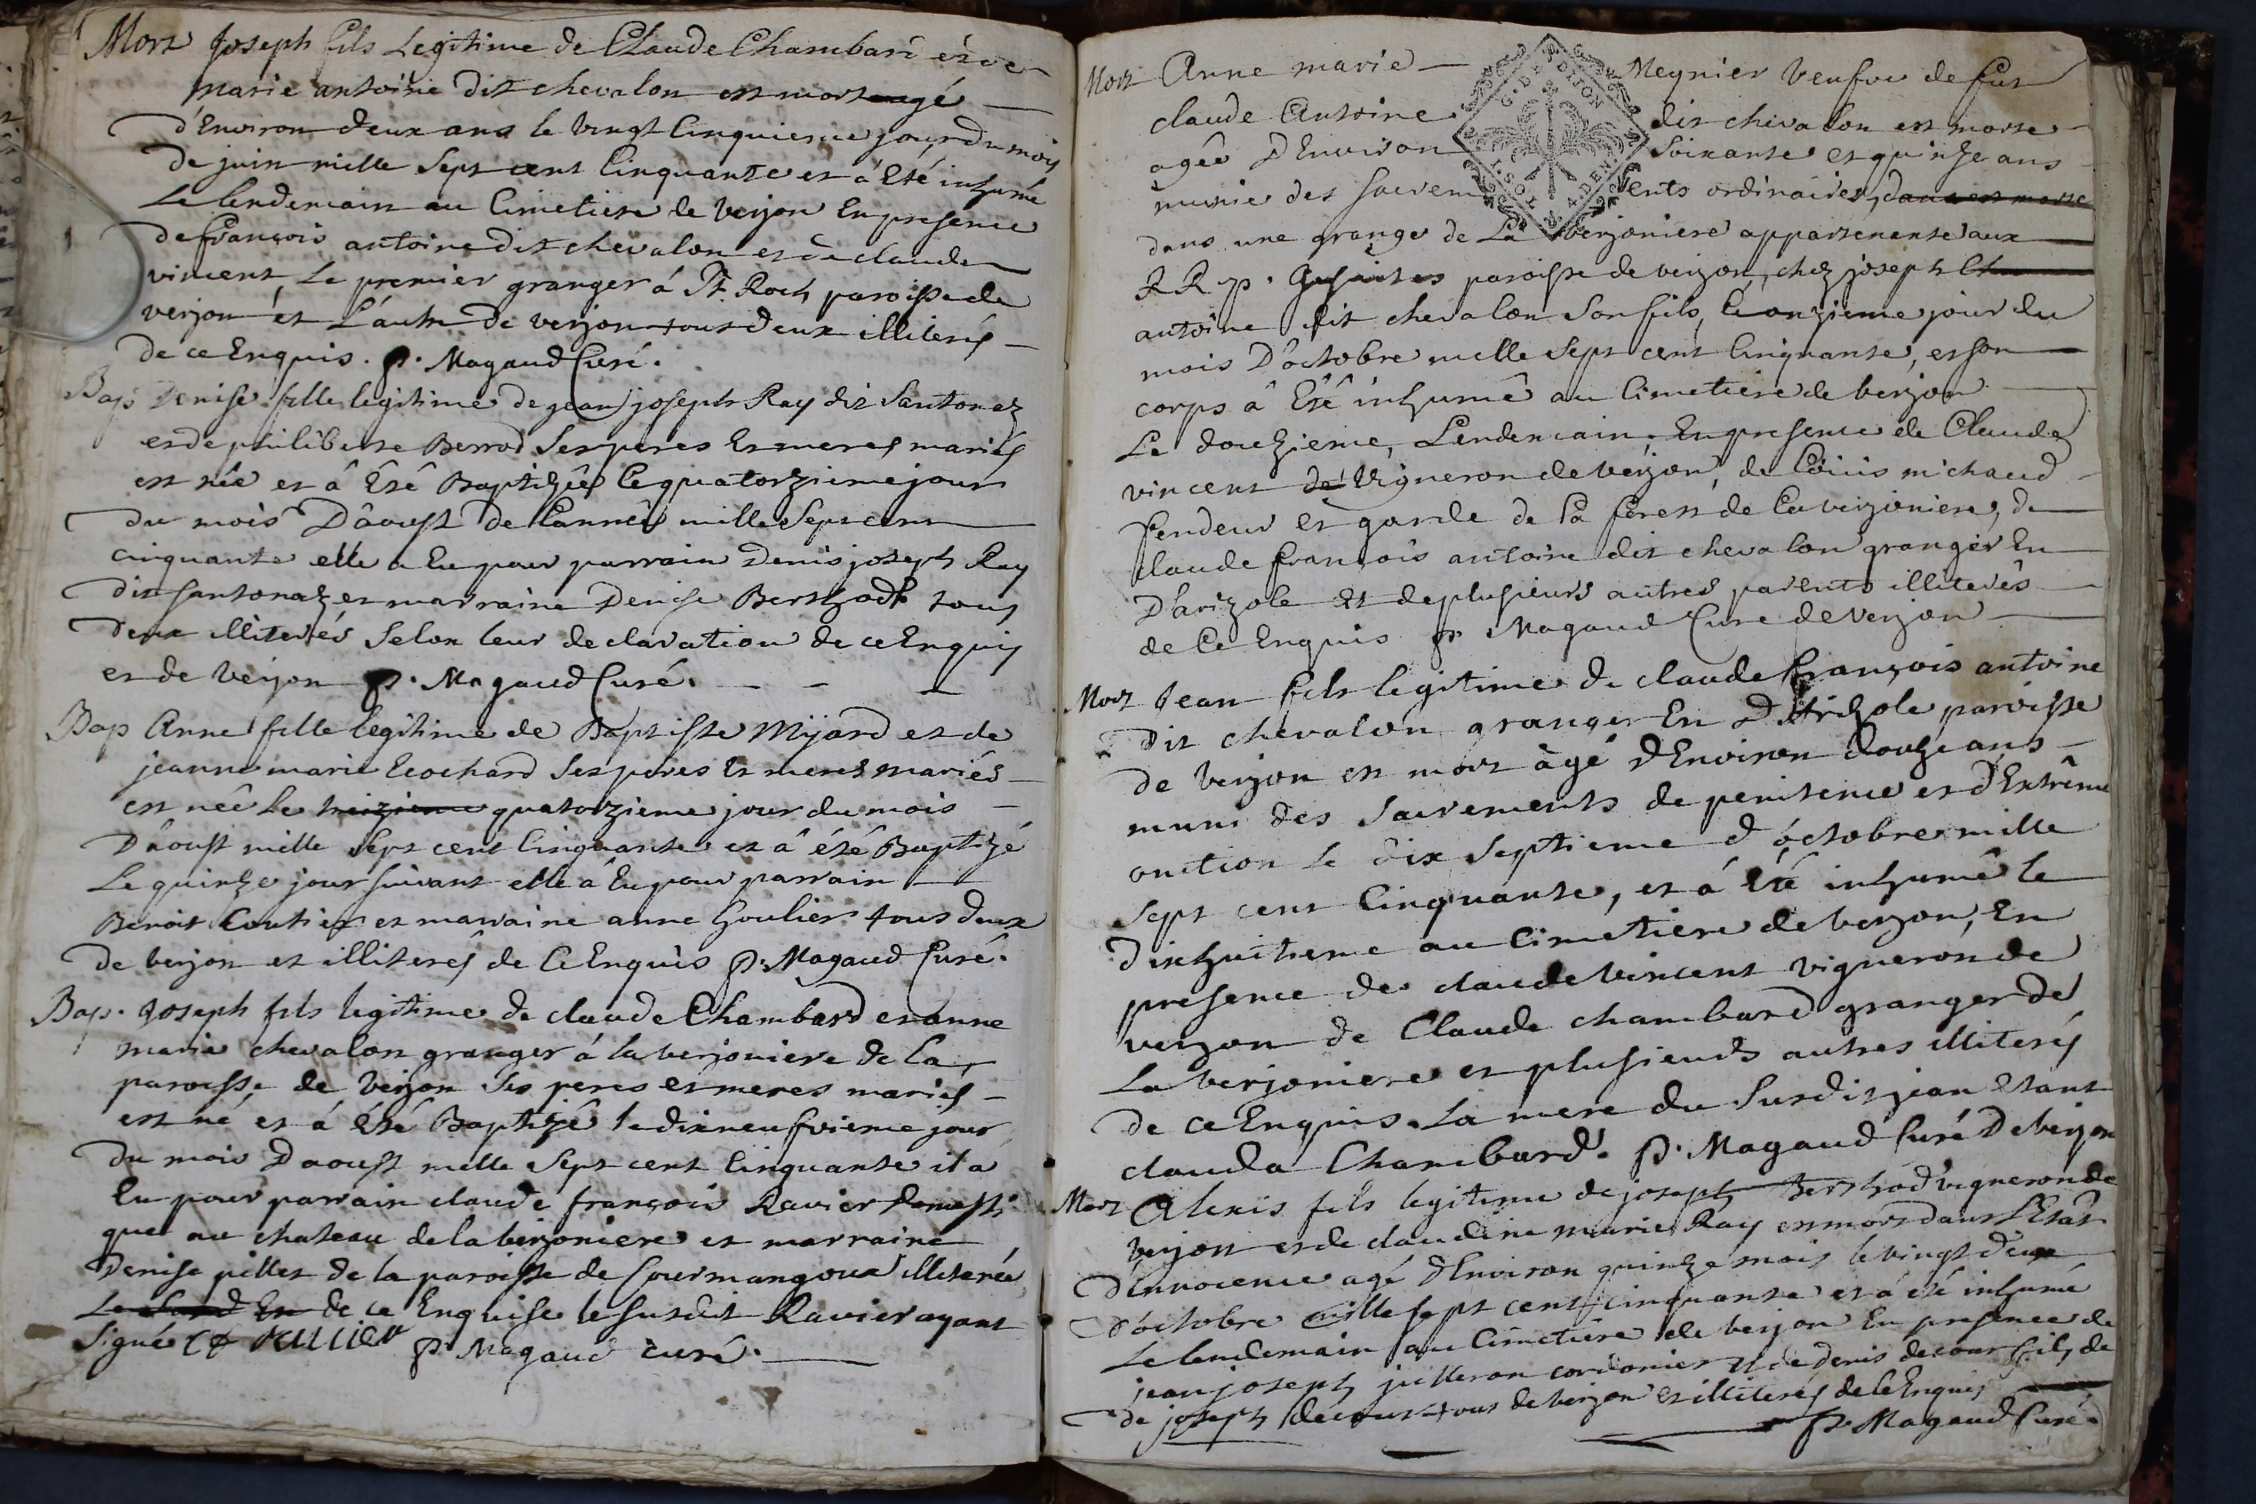 Mort Joseph fils Legitime de Claude Chambard et de
marie antoine dit chevalon est mort agé
d'Environ deux ans le vingt Cinquieme jour du mois
De juin mille Sept cent Cinquante et á Eté inhumé
Le lendemain au Cimetiere de verjon En presence
de françois antoine dit chevalon et de claude
vincent, Le premier granger á St. Roch paroisse de
verjon et L'autre de verjon tous deux illiterés
de ce Enquis. p. Magaud Curé.
Bap Denise fille legitime de jean joseph Ray dit Santonaz
et de philiberte Berrod Ses peres Et meres mariés
est née et â Êté Baptizêe le quatorzieme jour
du mois D'âoust de L'année mille Sept cent
cinquante elle a Eu pour parrain Denis joseph Ray
dit santonaz et marraine Denise Berthod tous
deux illiterés Selon leur declaration de ce Enquis
et de verjon p. Magaud Curé.
Bap Anne fille legitime de Baptiste Mijard et de
jeanne marie Ecochard Ses peres Et meres mariés
est née le treizieme quatorzieme jour du mois
D'âoust mille Sept cent Cinquante et â été Baptizé
Le quinze jour suivant elle â Eu pour parrain
Benoit et marraine anne Goulier tous deux
de verjon et illiterés de Ce Enquis p. Magaud Curé.
Bap. Joseph fils legitime de claude Chambard et anne
marie chevalon granger á la verjoniere de la
paroisse de verjon Ses peres et meres mariés
est né et á Eté Baptizé le dix neufvieme jour
du mois D'aoust mille Sept cent Cinquante il a
Eu pour parrain claude françois Ravier domesti-
que au chateau de la verjoniere et marraine
Denise pillet de la paroisse de Courmangoux illiterée
de ce Enquise le susdit Ravier ayant
Signé p. Magaud curé.
Mort Anne marie Meynier veufve de feu
claude Antoine dit chevalon est morte
agée D'Environ Soixante et quinze ans
munie des sacrements ordinaires,
dans une grange de La verjoniere appartenente aux
R R. p. jesuites paroisse de verjon, chez joseph
antoine dit chevalon Son fils, le onzieme jour du
mois D'octobre mille Sept cent Cinquante, et son
corps â Êtê inhumê au Cimetiere de verjon
Le douzieme, Lendemain, En presence de Claude
vincent de vigneron de verjon, de Loüis michaud
fendeur et garde de la forest de La verjoniere, de
claude françois antoine dit chevalon granger En
D'arizole et de plusieurs autres parents illiterés
de Ce Enquis p. Magaud Curé de verjon
Mort Jean fils legitime de claude françois antoine
dit chevalon granger En D'Arizole paroisse
de verjon est mort âgé d'Environ douze ans
muni des Sacrements de penitence et d'Extrême
onction le dix Septieme d'octobre mille
Sept cent Cinquante, et á Eté inhumê le
dixhuitieme au Cimetiere de verjon, En
presence de claude vincent vigneron de
verjon de Claude chambard granger de
La verjoniere et plusieurs autres illiterés
de ce Enquis. La mere du Susdit jean Etant
clauda Chambard. p. Magaud Curé De verjon
Mort Alexis fils legitime de joseph Berthod vigneron de
verjon et de claudine marie Ray est mort dans L'Etât
d'innocence agé d'Environ quinze mois le vingt deux
d'octobre mille sept cent cinquante et á été inhumé
Le lendemain au Cimetiere de verjon En presence de
jean joseph juilleron cordonier et de Denis decour fils de
de joseph decour tous de verjon et illiterés de ce Enquis
p. Magaud Curé.